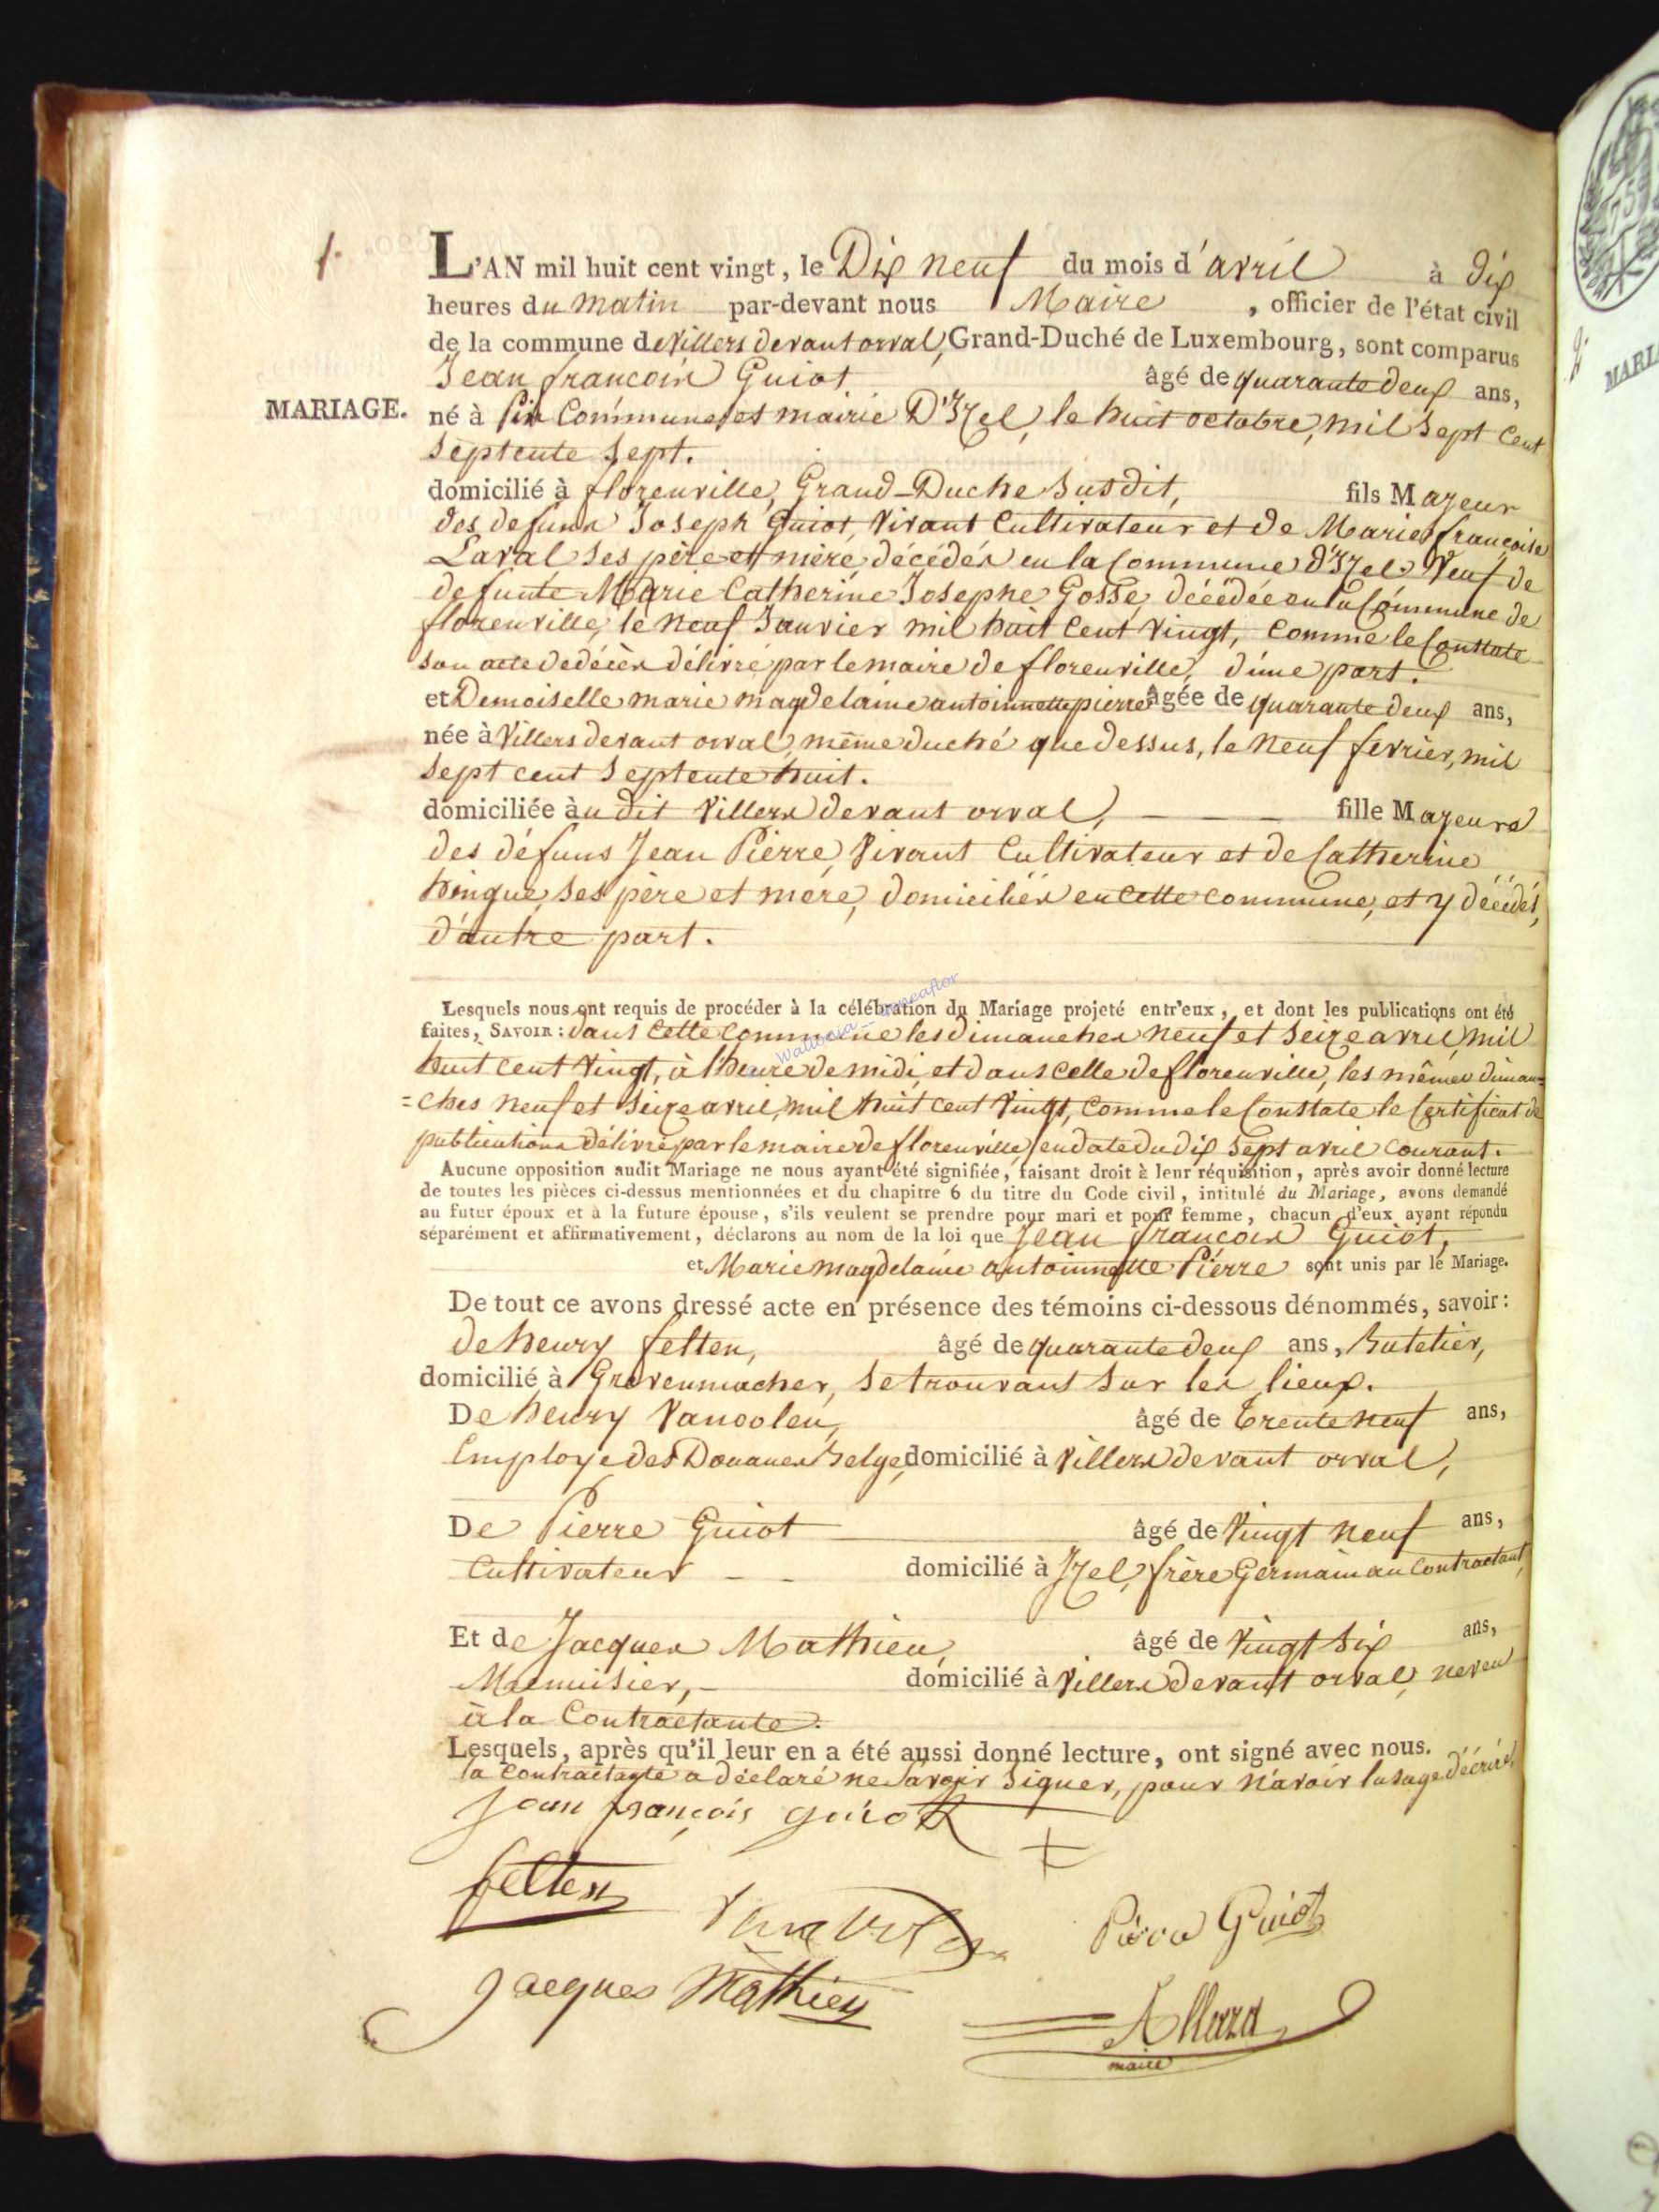 1.
L'AN mil huit cent vingt, le Dix neuf du mois d'avril à dix
heures du matin par-devant nous Maire , officier de l'état civil
de la commune de Villers devant orval, Grand-Duché de Luxembourg, sont comparus
Jean francois Guiot âgé de quarante deux ans,
MARIAGE. né à Pin Commune et mairie D'Izel, le huit octobre, mil sept cent
septente sept.
domicilié à florenville, Grand-Duche susdit, fils Majeur
des defuns Joseph Guiot, vivant Cultivateur et de Marie françoise
Laval ses père et mère, décédés en la Commune d'Izel. Veuf de
defunte Marie Catherine Josephe Gosse, décédée en la Commune de
florenville, le neuf Janvier mil huit cent vingt, comme le Constate
son acte de décès délivré par le maire de florenville, d'une part.
et Demoiselle marie magdelaine antoinnette pierre âgée de quarante deux ans,
née à Villers devant orval, même duché que dessus, le neuf fevrier, mil
sept cent septente huit.
domiciliée au dit Villers devant orval, fille Majeure
des défuns Jean Pierre, Vivant Cultivateur et de Catherine
hingue, ses père et mère, domiciliés en cette commune, et y décédés,
d'autre part.
Lesquels nous ont requis de procéder à la célébration du Mariage projeté entr'eux, et dont les publications ont été
faites, SAVOIR: dans cette commune les dimanches neuf et seize avril, mil
huit cent vingt, à l'heure de midi, et dans celle de florenville, les mêmes diman=
=ches neuf et seize avril, mil huit cent vingt, comme le Constate le Certificat de
publications délivré par le maire de florenville, en date du dix sept avril courant.
Aucune opposition audit Mariage ne nous ayant été signifiée, faisant droit à leur réquisition, après avoir donné lecture
de toutes les pièces ci-dessus mentionnées et du chapitre 6 du titre du Code civil, intitulé du Mariage, avons demandé
au futur époux et à la future épouse, s'ils veulent se prendre pour mari et pour femme, chacun d'eux ayant répondu
séparément et affirmativement, déclarons au nom de la loi que Jean francois Guiot,
et Marie magdelaine antoinnette Pierre sont unis par le Mariage.
De tout ce avons dressé acte en présence des témoins ci-dessous dénommés, savoir:
de henry felten, âgé de quarante deux ans, Batelier,
domicilié à Grevenmacher, se trouvant sur les lieux.
De henry Vanoolen, âgé de Trente neuf ans,
Employe des Douanes Belge, domicilié à Villers devant orval,
De Pierre Guiot âgé de Vingt neuf ans,
Cultivateur domicilié à Izel, frère Germain au Contractant,
Et de Jacques Mathieu, âgé de Vingt six ans,
Menuisier, domicilié à Villers devant orval, neveu
à la Contractante.
Lesquels, après qu'il leur en a été aussi donné lecture, ont signé avec nous.
la contractante a déclaré ne savoir signer, pour n'avoir l'usage d'écrire.
jean françois guiot
felten
Pierre Guiot
jacques Mathieu
Allard
maire
MARI